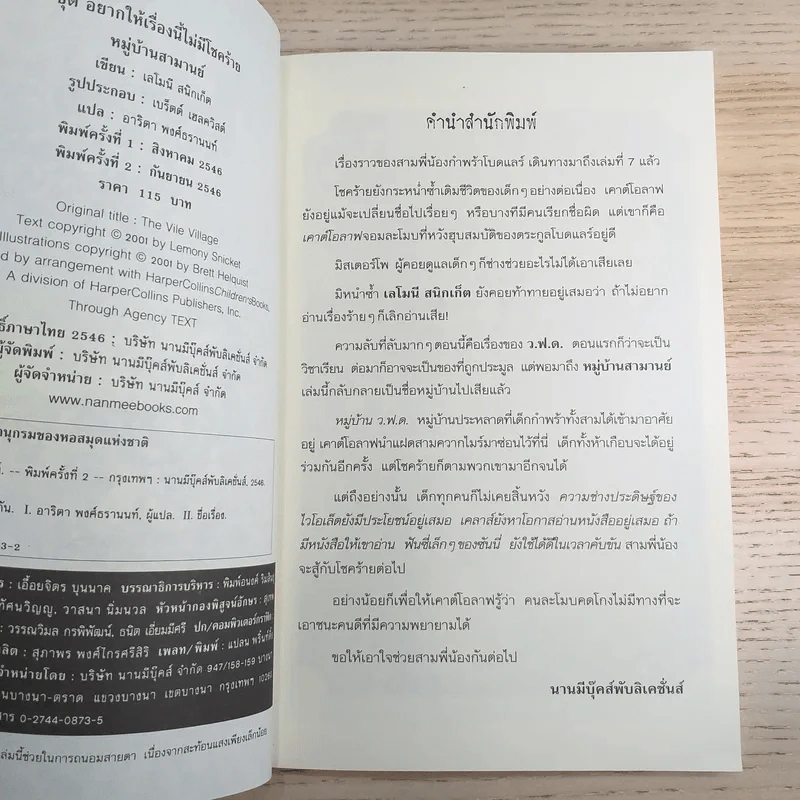 ชุด อยากให้เรื่องนี้ไม่มีโชคร้าย
หมู่บ้านสามานย์
เขียน : เลโมนี สนิกเก็ต
รูปประกอบ : เบร็ตต์ เฮลควิสต์
แปล : อาริตา พงศ์ธรานนท์
พิมพ์ครั้งที่ 1 : สิงหาคม 2546
พิมพ์ครั้งที่ 2 : กันยายน 2546
ราคา 115 บาท
Original title : The Vile Village
Text copyright © 2001 by Lemony Snicket
Illustrations copyright © 2001 by Brett Helquist
d by arrangement with HarperCollinsChildren'sBooks,
A division of HarperCollins Publishers, Inc.
Through Agency TEXT
ธิ์ภาษาไทย 2546 : บริษัท นานมีบุ๊คส์พับลิเคชั่นส์ จำกัด
ผู้จัดพิมพ์ : บริษัท นานมีบุ๊คส์พับลิเคชั่นส์ จำกัด
ผู้จัดจำหน่าย : บริษัท นานมีบุ๊คส์ จำกัด
www.nanmeebooks.com
านุกรมของหอสมุดแห่งชาติ
. -- พิมพ์ครั้งที่ 2 -- กรุงเทพฯ : นานมีบุ๊คส์พับลิเคชั่นส์, 2546.
กัน. I. อาริตา พงศ์ธรานนท์, ผู้แปล. II. ชื่อเรื่อง.
3-2
ร : เอื้อยจิตร บุนนาค บรรณาธิการบริหาร : พิมพ์อนงค์
ทัศนวิญญู, วาสนา นิ่มนวล หัวหน้ากองพิสูจน์อักษร :
: วรรณวิมล กรพิพัฒน์, ธนิต เอี่ยมมีศรี ปก/คอมพิวเตอร์กราฟิก
ลิต : สุภาพร พงศ์ไกรศรีสิริ เพลท/พิมพ์ : แปลน พริ้นท์ติ้ง
จำหน่ายโดย : บริษัท นานมีบุ๊คส์ จำกัด 947/158-159
นบางนา-ตราด แขวงบางนา เขตบางนา กรุงเทพฯ 10260
สาร 0-2744-0873-5
เล่มนี้ช่วยในการถนอมสายตา เนื่องจากสะท้อนแสงเพียงเล็กน้อย
คำนำสำนักพิมพ์
เรื่องราวของสามพี่น้องกำพร้าโบดแลร์ เดินทางมาถึงเล่มที่ 7 แล้ว
โชคร้ายยังกระหน่ำซ้ำเติมชีวิตของเด็กๆ อย่างต่อเนื่อง เคาต์โอลาฟ
ยังอยู่แม้จะเปลี่ยนชื่อไปเรื่อยๆ หรือบางทีมีคนเรียกชื่อผิด แต่เขาก็คือ
เคาต์โอลาฟจอมละโมบที่หวังฮุบสมบัติของตระกูลโบดแลร์อยู่ดี
มิสเตอร์โพ ผู้คอยดูแลเด็กๆ ก็ช่างช่วยอะไรไม่ได้เอาเสียเลย
มิหนำซ้ำ เลโมนี สนิกเก็ต ยังคอยท้าทายอยู่เสมอว่า ถ้าไม่อยาก
อ่านเรื่องร้ายๆ ก็เลิกอ่านเสีย!
ความลับที่ลับมากๆ ตอนนี้คือเรื่องของ ว.ฟ.ด. ตอนแรกก็ว่าจะเป็น
วิชาเรียน ต่อมาก็อาจจะเป็นของที่ถูกประมูล แต่พอมาถึง หมู่บ้านสามานย์
เล่มนี้กลับกลายเป็นชื่อหมู่บ้านไปเสียแล้ว
หมู่บ้าน ว.ฟ.ด. หมู่บ้านประหลาดที่เด็กกำพร้าทั้งสามได้เข้ามาอาศัย
อยู่ เคาต์โอลาฟนำแฝดสามควากไมร์มาซ่อนไว้ที่นี่ เด็กทั้งห้าเกือบจะได้อยู่
ร่วมกันอีกครั้ง แต่โชคร้ายก็ตามพวกเขามาอีกจนได้
แต่ถึงอย่างนั้น เด็กทุกคนก็ไม่เคยสิ้นหวัง ความช่างประดิษฐ์ของ
ไวโอเล็ตยังมีประโยชน์อยู่เสมอ เคลาส์ยังหาโอกาสอ่านหนังสืออยู่เสมอ ถ้า
มีหนังสือให้เขาอ่าน ฟันซี่เล็กๆ ของซันนี่ ยังใช้ได้ดีในเวลาคับขัน สามพี่น้อง
จะสู้กับโชคร้ายต่อไป
อย่างน้อยก็เพื่อให้เคาต์โอลาฟรู้ว่า คนละโมบคดโกงไม่มีทางที่จะ
เอาชนะคนดีที่มีความพยายามได้
ขอให้เอาใจช่วยสามพี่น้องกันต่อไป
นานมีบุ๊คส์พับลิเคชั่นส์